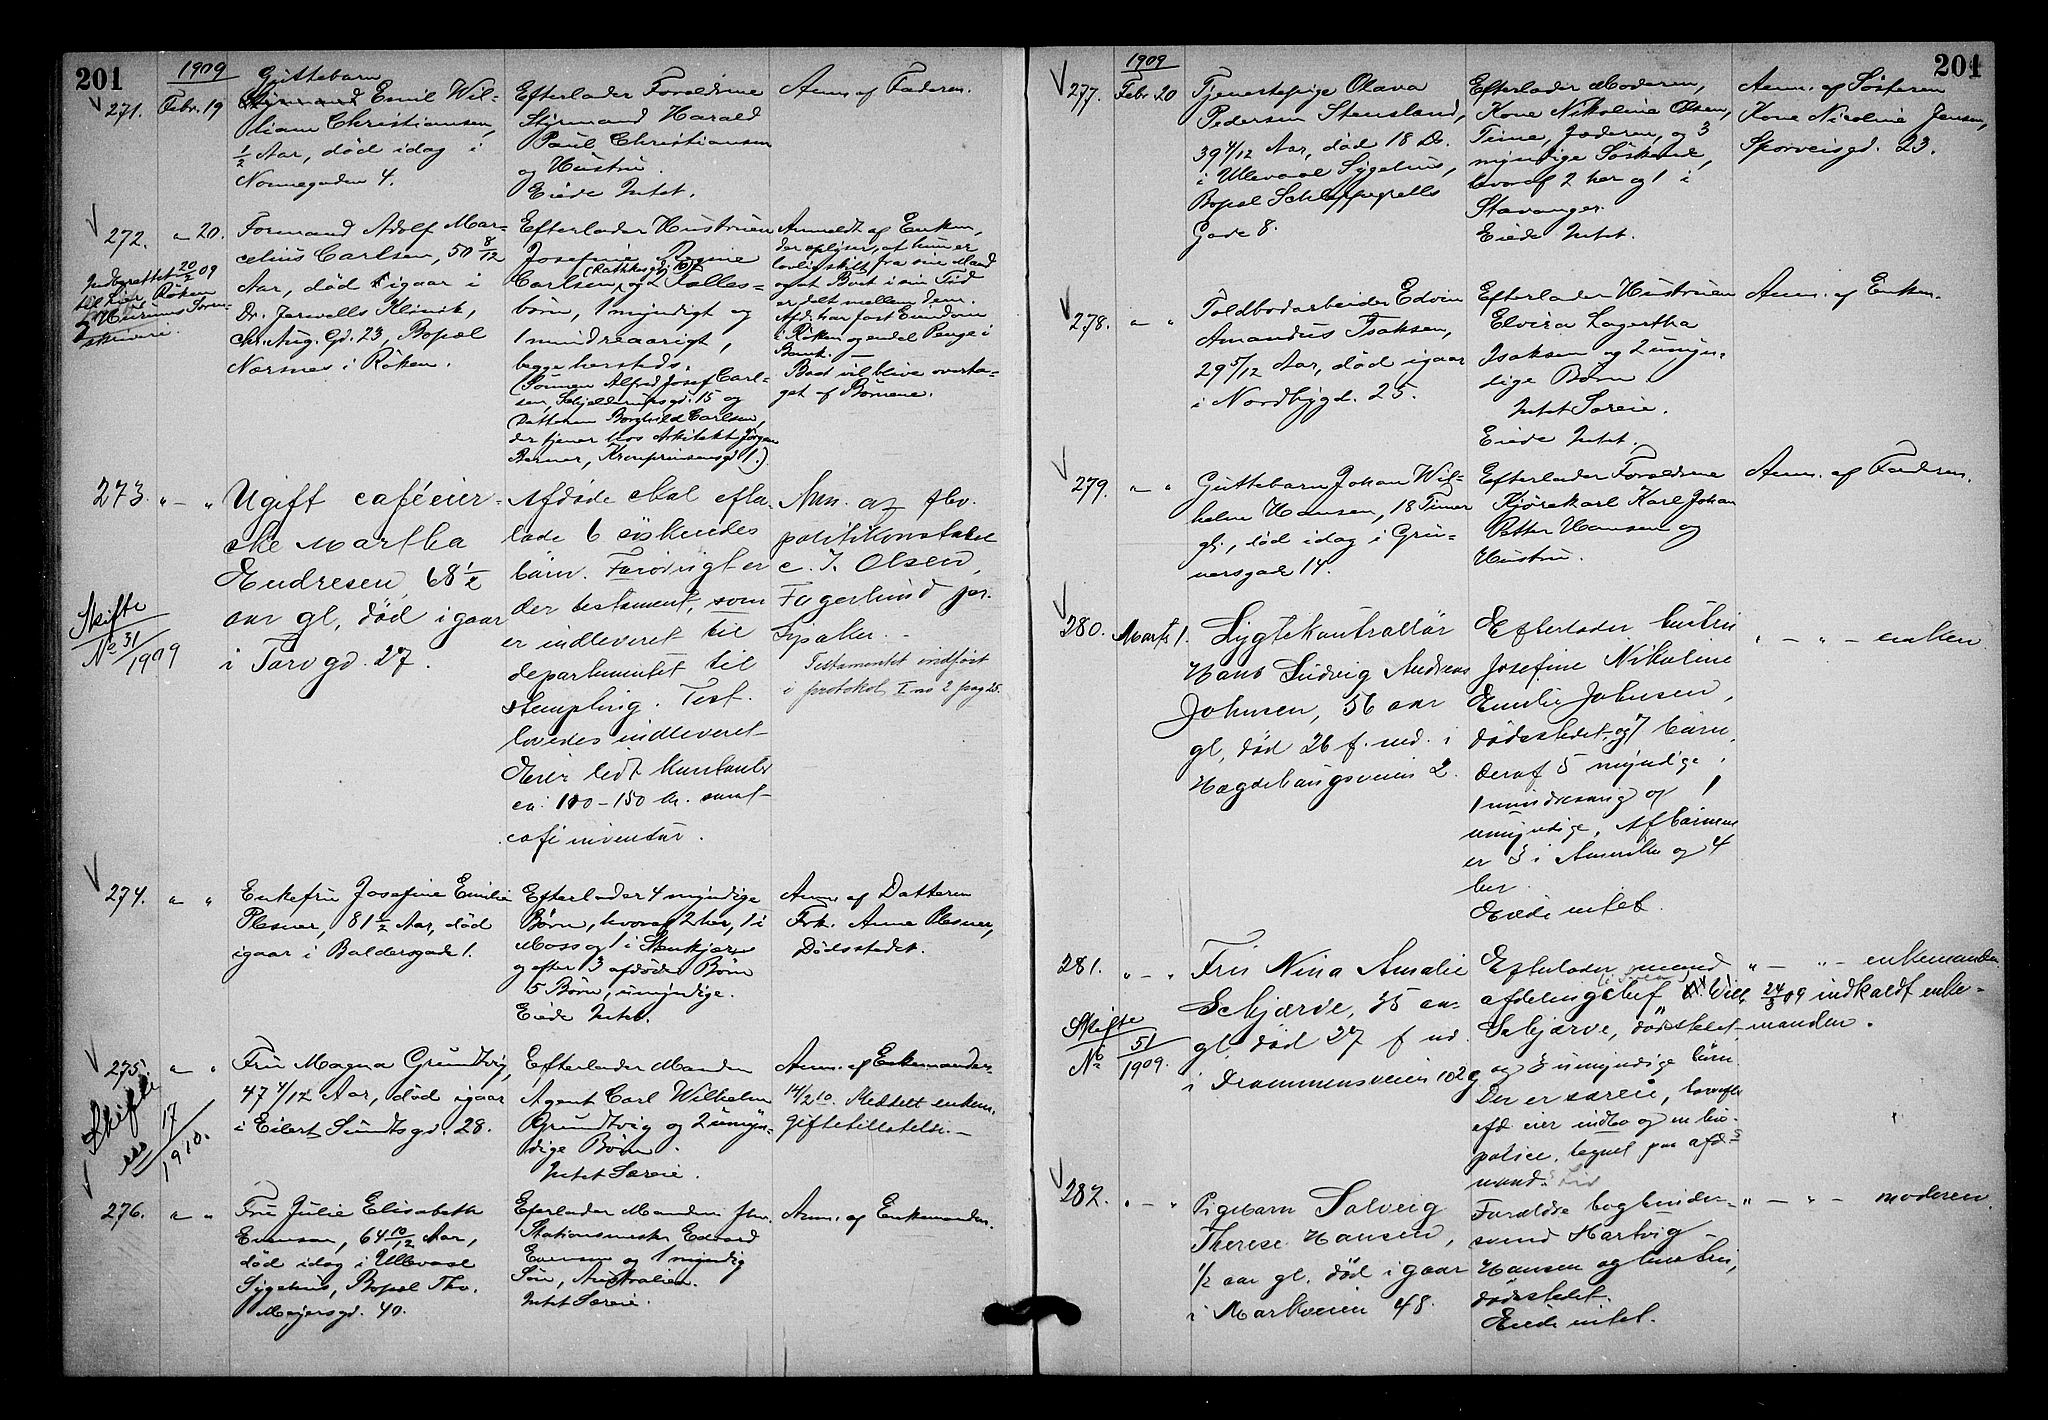 201
1909
271. Febr. 19
Guttebarn
Emil Wil-
liam Christiansen,
1/2 Aar, død idag i
Nonnegaden 4.
Efterlader Forældrene
Styrmand Harald
Paul Christiansen
og Hustru.
Eiede Intet.
Anm. af Faderen.
272. " 20.
Indberettet 20/2 09
til Lier, Røken
og Hurums Soren-
skriveri.
Formand Adolf Mar-
celius Carlsen, 50 8/12
Aar, død igaar i
Dr. Jervells Klinik,
Chr. Aug. Gd. 23, Bopæl
Nærsnes i Røken.
Efterlader Hustruen
Josefine Regine
Carlsen, og 2 Fælles-
børn, 1 myndigt og
1 mindreaarigt,
begge hersteds.
(Sønnen Alfred Josef Carl-
sen, Schjelderupsgd. 15 og
Datteren Borghild Carlsen,
der tjener hos Arkitekt Jørgen
Berner, Kronprinsensgd 1.)
Anmeldt af Enken,
der oplyser, at hun er
lovlig skilt fra sin Mand
og at Boet i sin Tid
er delt mellem dem.
Afdøde har fast Eiendom
i Røken og endel Penge i
Bank. —
Boet vil blive overta-
get af Børnene.
273. " - "
Skifte
No 31/1909
Ugift caféeier-
ske Martha
Endresen, 68 1/2
aar gl, død igaar
i Torvgd. 27.
Afdøde skal efter-
lade 6 søskendes
børn. Forøvrigt er
der testament, som
er indleveret til
departementet til
stempling. Test.
lovedes indleveret
Eier lidt kontanter
ca: 100-150 kr. samt
café inventar.
Anm. af fhv.
politikonstabel
C. J. Olsen,
Fagerlund pr.
Lysaker. -
Testamentet indført
i protokol I no 2 pag 25.
274. " "
Enkefru Josefine Emilie
Plesner, 81 1/2 Aar, død
igaar i Baldersgade 1.
Efterlader 4 myndige
Børn, hvoraf 2 her, 1 i
Moss og 1 i Stenkjær
og efter 3 afdøde Børn
5 Børn, umyndige.
Eiede Intet.
Anm. af Datteren
Frk. Anna Plesner,
Dødsstedet.
275. " "
Skifte
17/1910.
Fru Magna Grundtvig,
47 4/12 Aar, død igaar
i Eilert Sundtsgd. 28.
Efterlader Manden
Agent Carl Wilhelm
Grundtvig og 2 umyn-
dige Børn.
Intet Særeie.
Anm. af Enkemanden
14/2 10. Meddelt enkem.
giftetilladelse. -
276. " "
Fru Julie Elisabeth
Evensen, 64 10/12 Aar,
død idag i Ullevaal
Sygehus, Bopæl Thv.
Meyersgd. 40.
Eferlader Manden fhv.
Stationsmester Edvard
Evensen og 1 myndig
Søn, Australien.
Intet Særeie.
Anm. af Enkemanden.
201
1909
277. Febr. 20
Tjenestepige Olava
Pedersen Stensland,
39 4/12 Aar, død 18 Ds.
i Ullevaal Sygehus,
Bopæl Schleppegrells
Gade 8.
Efterlader Moderen,
Kone Nikoline Olsen,
Time, Jæderen, og 3
myndige Søskende,
hvoraf 2 her og 1 i
Stavanger.
Eiede Intet.
Anm. af Søsteren
Kone Nicoline Jensen,
Sporveisgd. 23.
278. " "
Toldbodarbeider Edvin
Amandus Isaksen,
29 5/12 Aar, død igaar
i Nordbygd. 25.
Efterlader Hustruen
Elvira Lagertha
Isaksen og 2 umyn-
dige Børn.
Intet Særeie.
Eiede Intet.
Anm. af Enken.
279. " "
Guttebarn Johan Wil-
helm Hansen, 18 Timer
gl., død idag i Grü-
nersgade 14.
Efterlader Forældrene
Kjørekarl Karl Johan
Petter Hansen og
Hustru.
Anm. af Faderen.
280. Marts 1.
Lygtekontrollør
Hans Ludvig Andreas
Johnsen, 56 aar
gl, død 26 f. md. i
Hægdehaugsveien 2.
Efterlader hustru
Josefine Nikoline
Emilie Johnsen,
dødsstedet og 7 børn,
deraf 5 myndige,
1 mindreaarig og 1
umyndige. Af børnene
er 3 i Amerika og 4
her.
Eiede intet.
" - " - enken
281. " - "
Skifte
No 51/1909.
Fru Nina Amalie
Schjærve, 35 aar
gl. død 27 f. md.
i Drammensveien 102 g
Efterlader mand
afdelingschef Wilh.
Schjærve, dødsstedet
og 3 umyndige børn
Der er særeie, hvorefter
afd. eier indbo og en livs-
police, tegnet paa afd.s
mands Liv
" - " - enkemanden
24/3 09 indkaldt enke-
manden.
282. " - "
Pigebarn Solveig
Therese Hansen,
1/2 aar gl. død igaar
i Markveien 48.
Forældre bogbinder-
svend Hartvig
Hansen og hustru,
dødsstedet.
Eiede intet.
" - " - moderen